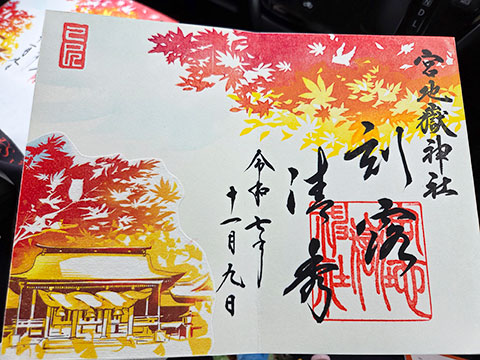 宮地嶽神社
刻露
清秀
令和七年
十一月九日